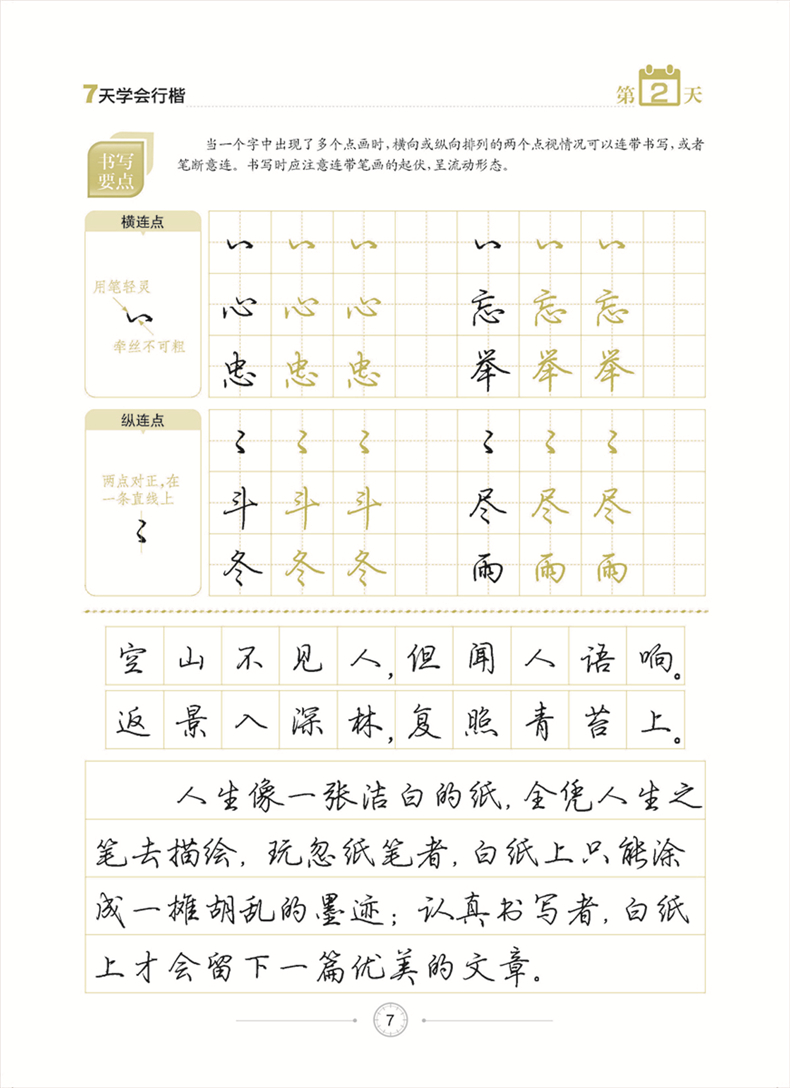 7天学会行楷
第2天
书写
要点
当一个字中出现了多个点画时,横向或纵向排列的两个点视情况可以连带书写,或者
笔断意连。书写时应注意连带笔画的起伏,呈流动形态。
横连点
用笔轻灵
牵丝不可粗
心 心 心 忘 忘 忘
忠 忠 忠 举 举 举
纵连点
两点对正,在
一条直线上
斗 斗 斗 尽 尽 尽
冬 冬 冬 雨 雨 雨
空山不见人,但闻人语响。
返景入深林,复照青苔上。
人生像一张洁白的纸,全凭人生之
笔去描绘,玩忽纸笔者,白纸上只能涂
成一摊胡乱的墨迹;认真书写者,白纸
上才会留下一篇优美的文章。
7